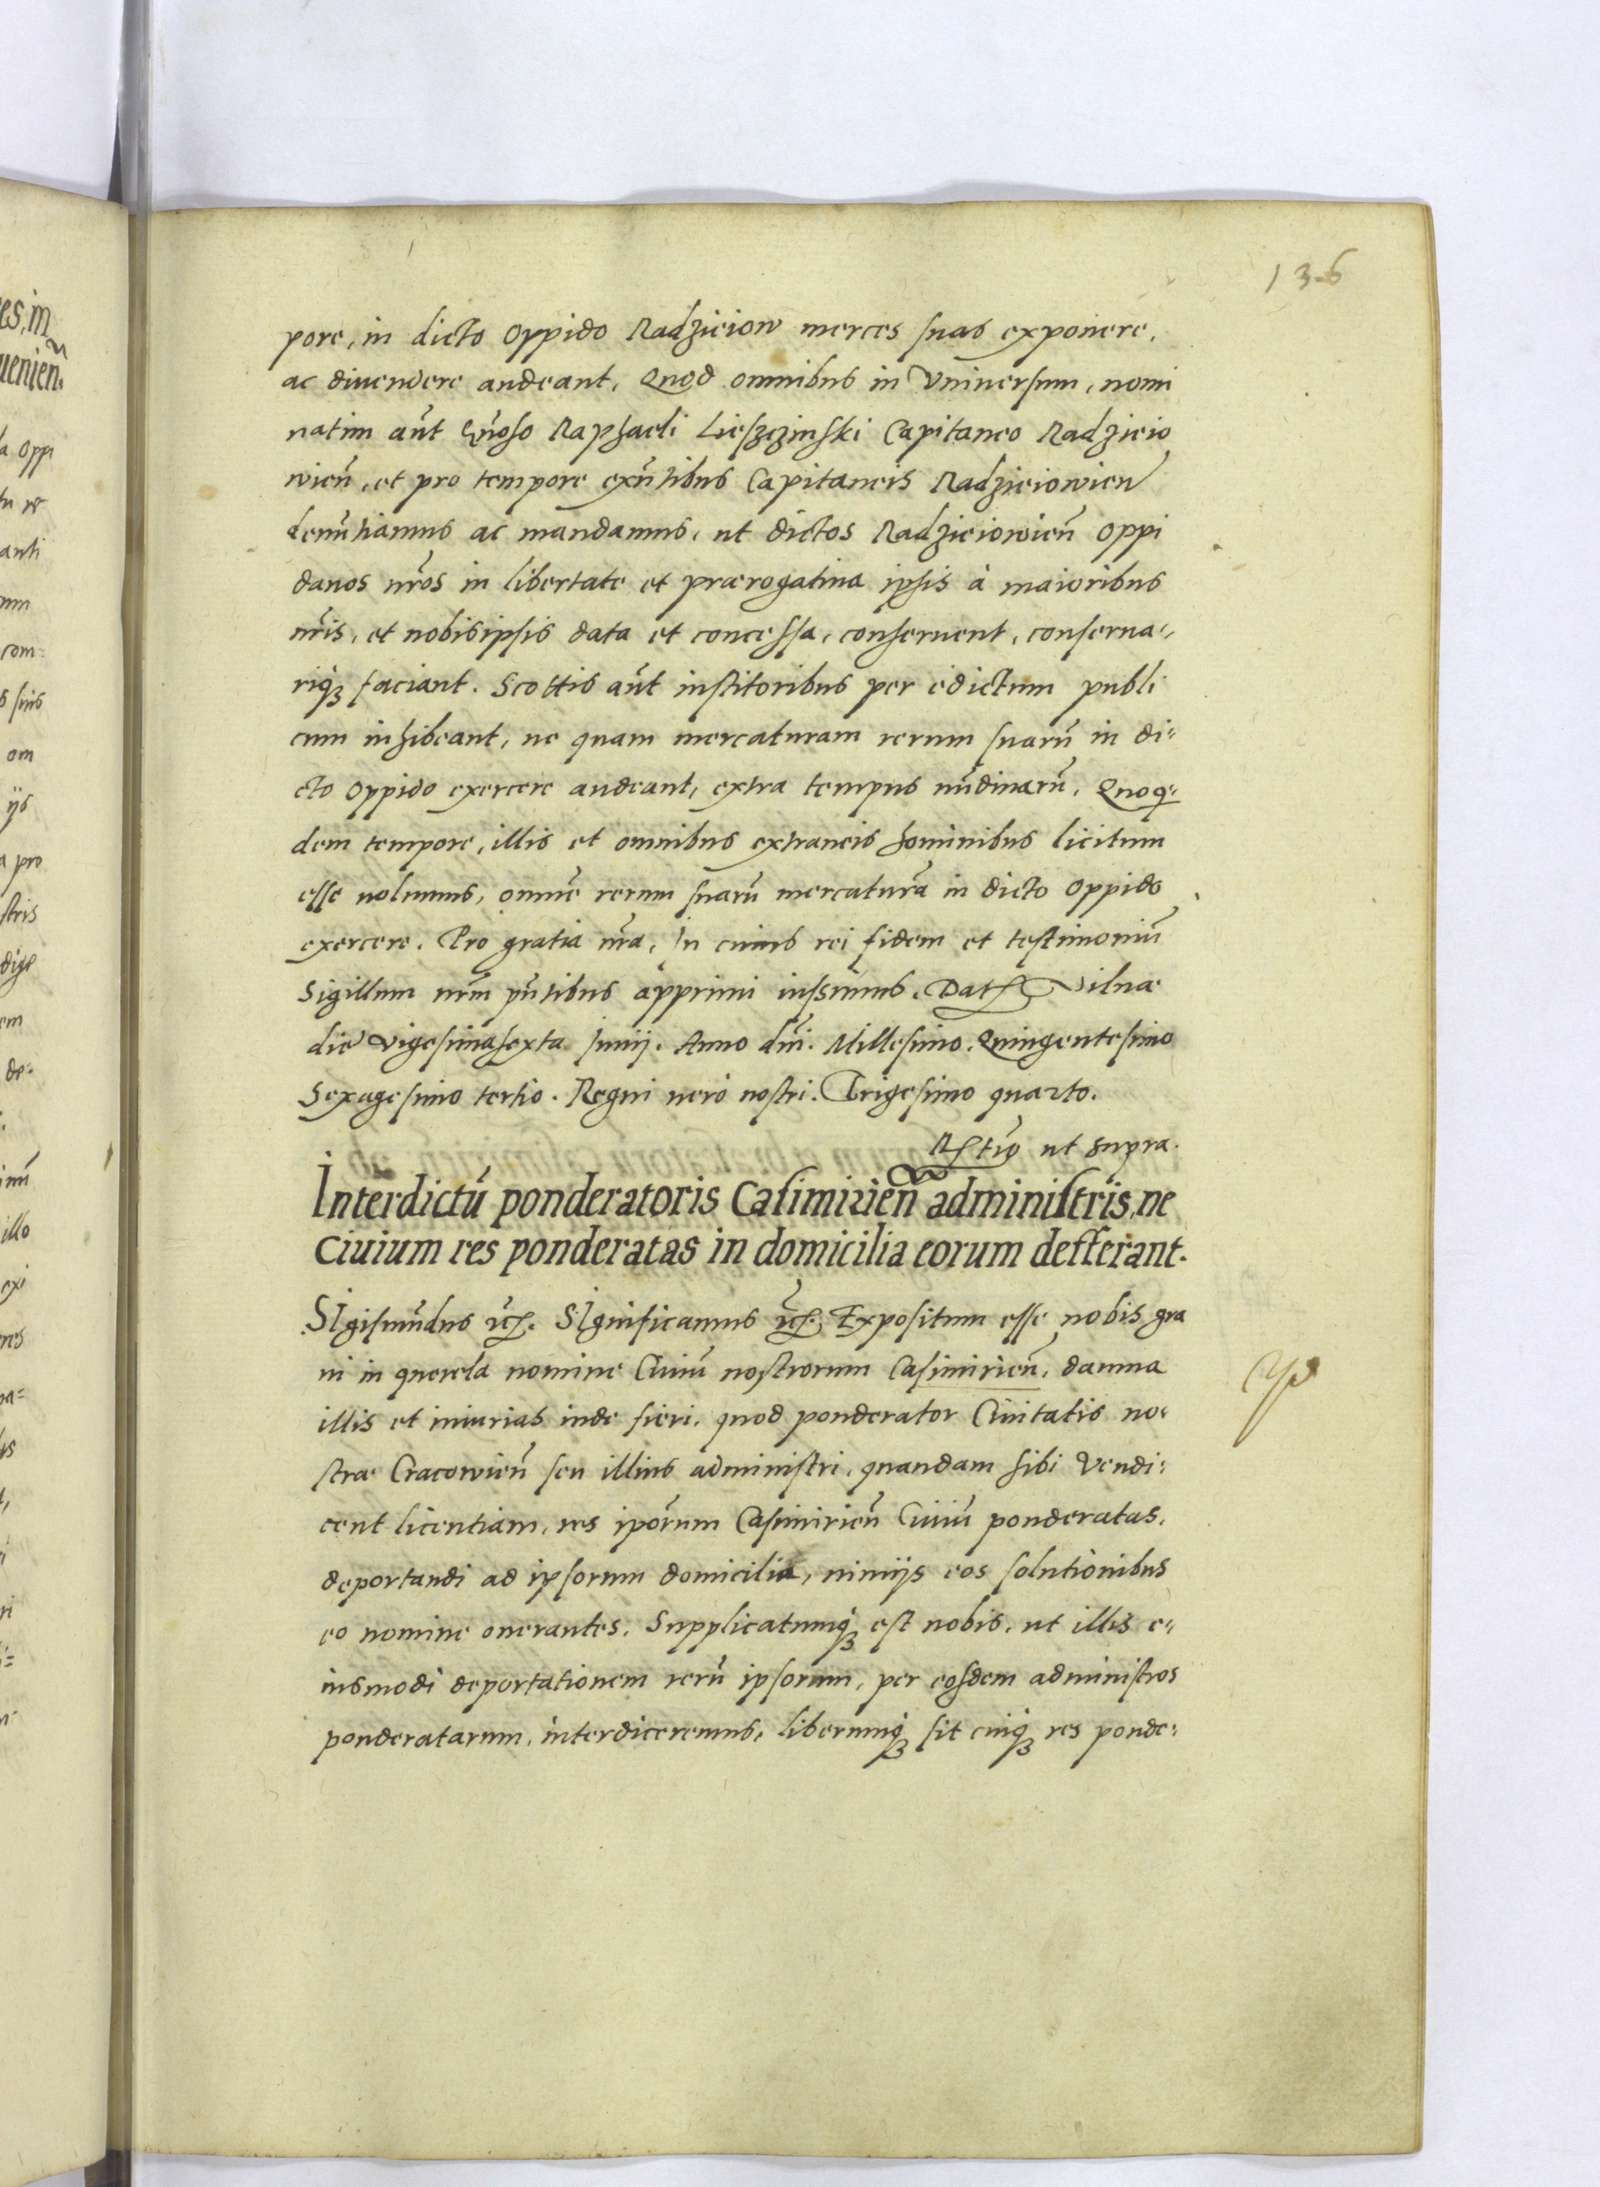 136
pore, in dicto oppido Radzieiow merces suas exponere,
ac diuendere audeant. Quod omnibus in vniuersum, nomi
natim aũt Gñoso Raphaeli Lieszczinski Capitaneo Radzieio
wieñ, et pro tempore exñtibus Capitaneis Radzieiowieñ
denũtiamus ac mandamus, ut dictos Radzieiowieñ oppi
danos nr̃os in libertate et prærogatiua ipsis à maioribus
nr̃is, et nobis ipsis data et concessa, conseruent, conserua-
riq3 faciant. Scottis aũt institoribus per edictum publi
cum inhibeant, ne quam mercaturam rerum suarũ in di-
cto oppido exercere audeant, extra tempus nũdinarũ. Quoq-
dem tempore, illis et omnibus extraneis hominibus licitum
esse uolumus, omnẽ rerum suarũ mercaturã in dicto oppido
exercere. Pro gratia nr̃a. In cuius rei fidem et testimoniũ
Sigillum nr̃m pñtibus apprimi iussimus. Dat Vilnæ
die vigesima sexta Junij. Anno dñi. Millesimo. Quingentesimo
Sexagesimo tertio. Regni uero nostri. Trigesimo quarto.
ut supra.
Interdictũ ponderatoris Casimirieñ administris, ne
Ciuium res ponderatas in domicilia eorum defferant.
SIgismũdus etc. SIgnificamus etc. Expositum esse nobis gra
ui in querela nomine Ciuiũ nostrorum Casimirieñ, damna
illis et iniurias inde fieri, quod ponderator Ciuitatis no-
stræ Cracowieñ seu illius administri, quandam sibi vendi-
cent licentiam, res ipõrum Casimirieñ Ciuiũ ponderatas,
deportandi ad ipsorum domicilia, nimijs eos solutionibus
eo nomine onerantes. Supplicatumq3 est nobis, ut illis e-
iusmodi deportationem rerũ ipsorum, per eosdem administros
ponderatarum, interdiceremus, liberumq3 sit cuiq3 res ponde-